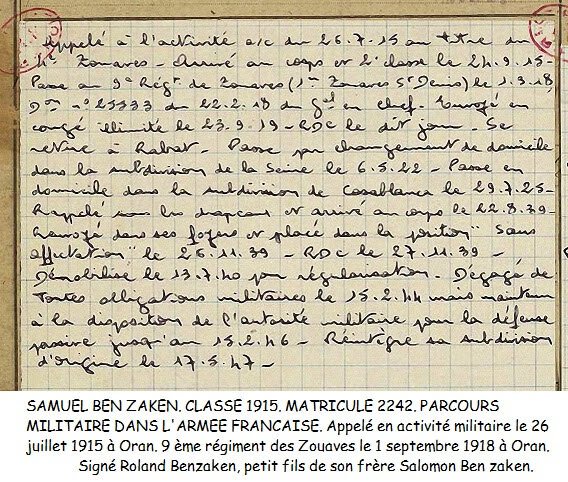 Appelé à l'activité a/c du 26.7.15 au titre du
4e Zouaves - Arrivé au corps et 2e classe le 24.9.15-
Passé au 9e Régt de Zouaves (1er Zouaves St Denis) le 1.3.18
Don n° 25333 du 22.2.18 du Gal en chef. Envoyé en
congé illimité le 23.9.19 - RDC le dit jour. Se
retire à Rabat - Passé par changement de domicile
dans la subdivision de la Seine le 6.5.22 - Passé en
domicile dans la subdivision de Casablanca le 29.7.25-
Rappelé sous les drapeaux et arrivé au corps le 22.8.39-
Renvoyé dans ses foyers et placé dans la position "Sans
affectation" le 26.11.39 - RDC le 27.11.39 -
Démobilisé le 13.7.40 par régularisation. Dégagé de
toutes obligations militaires le 15.2.44 mais maintenu
à la disposition de l'autorité militaire pour la défense
passive jusqu'au 15.2.46 - Réintègre sa subdivision
d'origine le 17.5.47 -
SAMUEL BEN ZAKEN. CLASSE 1915. MATRICULE 2242. PARCOURS
MILITAIRE DANS L'ARMEE FRANCAISE. Appelé en activité militaire le 26
juillet 1915 à Oran. 9 ème régiment des Zouaves le 1 septembre 1918 à Oran.
Signé Roland Benzaken, petit fils de son frère Salomon Ben zaken.